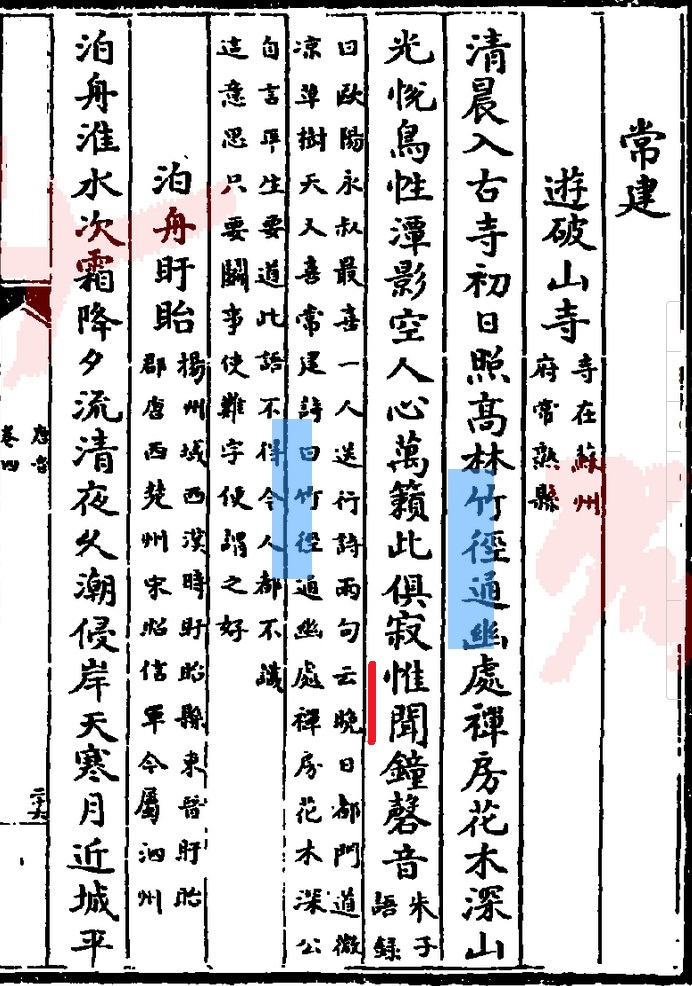 常建
遊破山寺
寺在蘇州
府常熟縣
清晨入古寺初日照高林竹徑通幽處禪房花木深山
光悅鳥性潭影空人心萬籟此俱寂惟聞鐘磬音
朱子
語錄
曰歐陽永叔最喜一人送行詩兩句云晚日都門道微
凉草樹天又喜常建詩曰竹徑通幽處禪房花木深公
自言平生要道此語不得今人都不識
這意思只要鬬事使難字便謂之好
泊舟盱眙
揚州域西漢時盱眙縣東晉盱眙
郡唐西楚州宋昭信軍今屬泗州
泊舟淮水次霜降夕流清夜久潮侵岸天寒月近城平
唐音
卷四
二十六